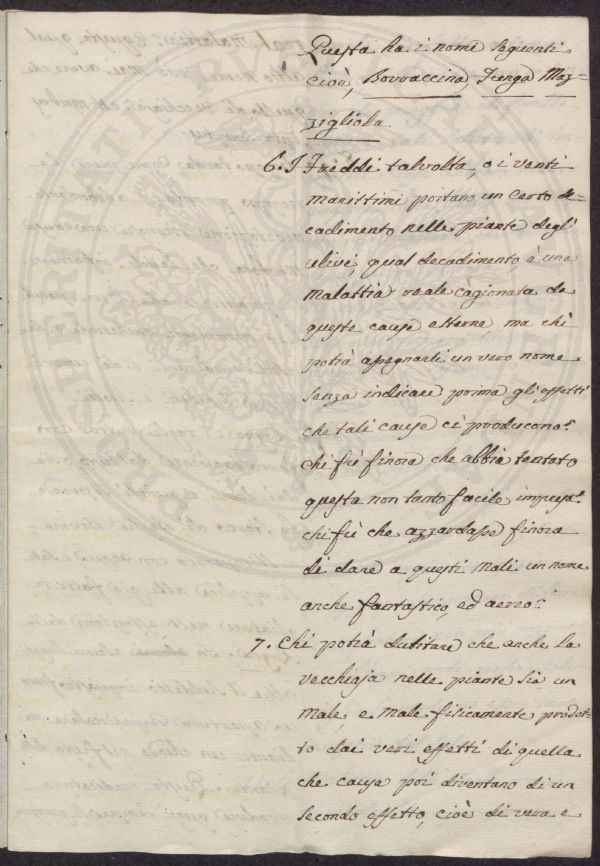 Questa ha i nome seguenti
cioè, Bovvaccina, Funga Maz=
zigliola.
6. I Freddi talvolta, o i venti
marittimi portano un certo de=
cadimento nelle piante degl'
ulivi, qual decadimento, è una
malattia reale cagionata da
queste cause esterne, ma chi
potrà assegnarli un vero nome
senza indicare prima gli effetti
che tali cause ci producono?
chi fù finora che abbia tentato
questa non tanto facile impresa?
chi fù che azzardasse finora
di dare a questi mali un nome
anche fantastico, ed aereo?
7. Chi potrà dubitare che anche la
vecchiaja nelle piante sia un
male, e male fisicamente prodot=
to dai veri effetti di quella
che causa poi diventano di un
secondo effetto, cioè di vera e